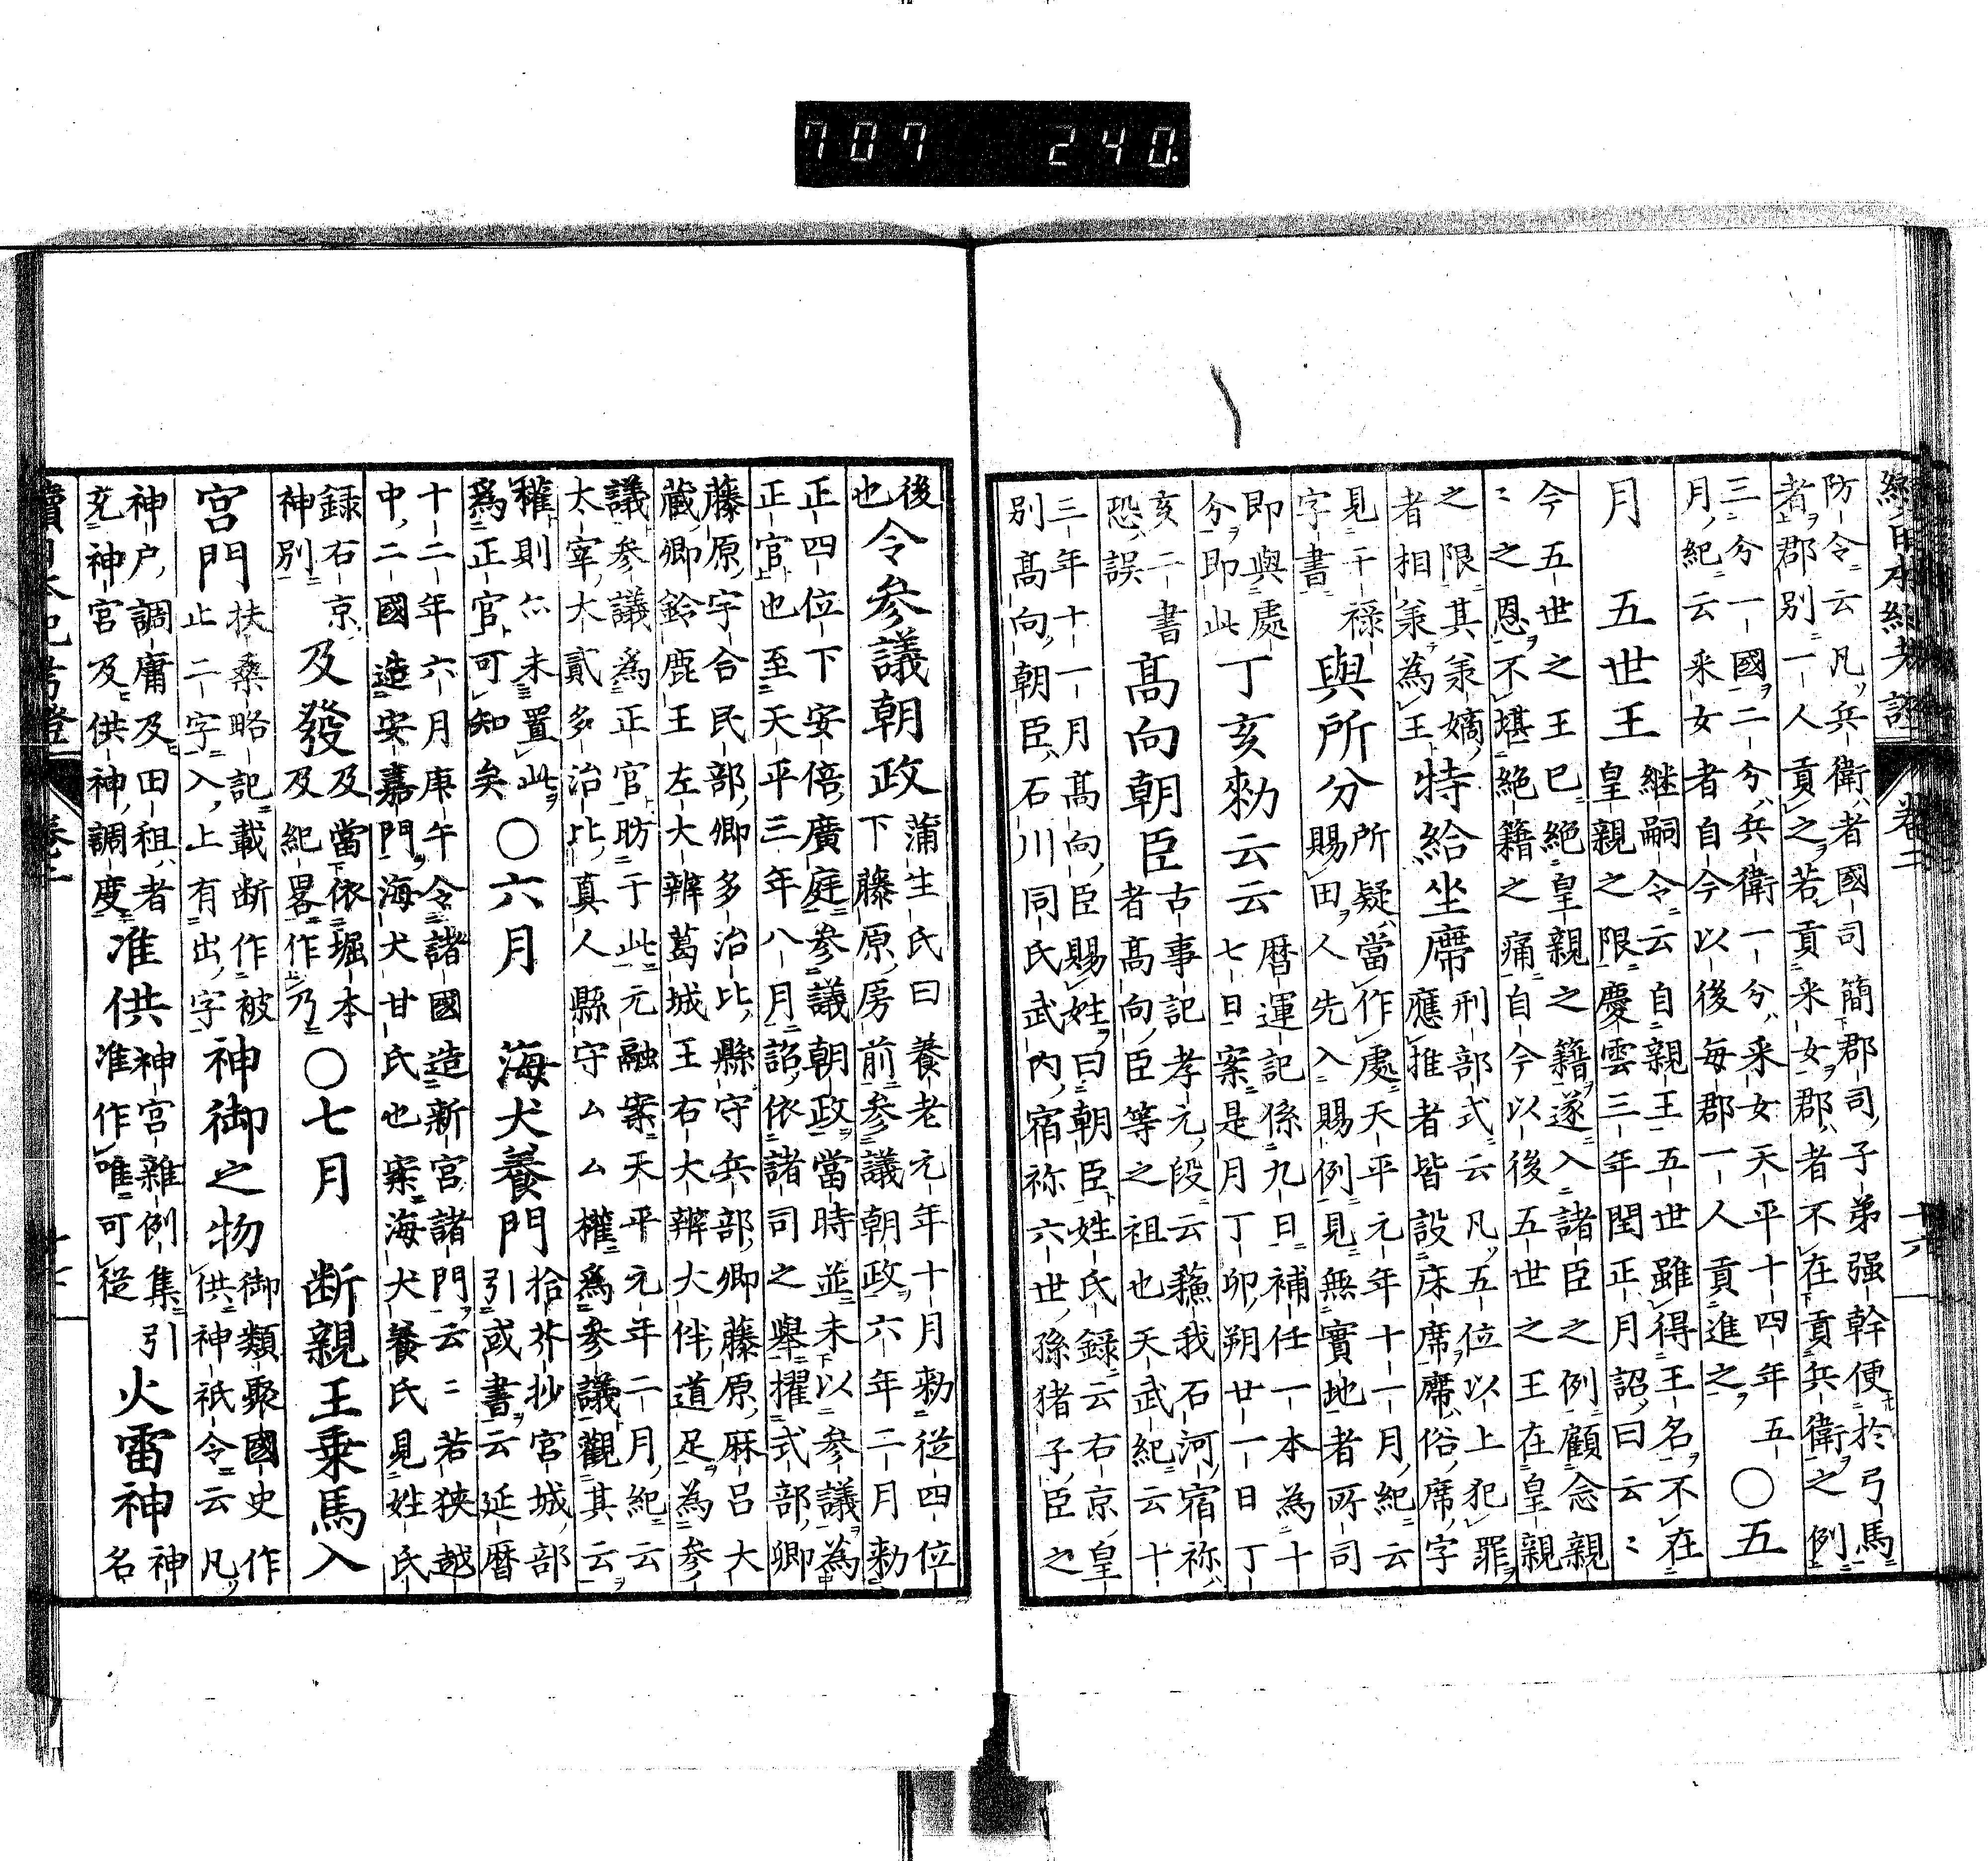 707 240.
續日本紀考證 卷二 十六
防令云凡兵衛者國司簡郡司子弟强幹便於弓馬
者郡別一人貢之若貢采女郡者不在貢兵衛之例
三分一國二分兵衛一分采女天平十四年五
月紀云采女者自今以後每郡一人貢進之
○五
月 五世王
継嗣令云自親王五世雖得王名不在
皇親之限慶雲三年閏正月詔曰云〻
今五世之王已絕皇親之籍遂入諸臣之例顧念親
〻之恩不堪絕籍之痛自今以後五世之王在皇親
之限其羕嫡
者相羕為王
特給坐席
刑部式云凡五位以上犯罪
應推者皆設床席席俗席字
見干祿
字書
與所分
所疑當作處天平元年十一月紀云
賜田人先入賜例見無實地者所司
即與處
分即此
丁亥勅云云
暦運記係九日補任一本為十
七日案是月丁卯朔廿一日丁
亥二書
恐誤
髙向朝臣
古事記孝元段云蘓我石河宿祢
者髙向臣等之祖也天武紀云十
三年十一月髙向臣賜姓曰朝臣姓氏録云右京皇
別髙向朝臣石川同氏武内宿祢六世孫猪子臣之
後
也
令参議朝政
蒲生氏曰養老元年十月勅從四位
下藤原房前参議朝政六年二月勅
正四位下安倍廣庭参議朝政當時並未以参議為
正官也至天平三年八月詔依諸司之舉擢式部卿
藤原宇合民部卿多治比縣守兵部卿藤原麻呂大
蔵卿鈴鹿王左大辨葛城王右大辨大伴道足為参
議参議為正官昉于此元融案天平元年二月紀云
太宰大貳多治比真人縣守ムム權爲参議觀其云
權則尒未置此
爲正官可知矣
○六月 海犬養門
拾芥抄宮城部
引或書云延暦
十二年六月庚午令諸國造新宮諸門云〻若狹越
中二國造安嘉門海犬甘氏也案海犬養氏見姓氏
録右京
神別
及發
及當依堀本
及紀畧作乃
○七月 断親王乗馬入
宮門
扶桑略記載断作被
止二字入上有出字
神御之物
御類聚國史作
供神祇令云凡
神户調庸及田租者
充神宮及供神調度
准供
神宮雑例集引
准作唯可從
火雷神
神
名
續日本紀考證 卷二 十七